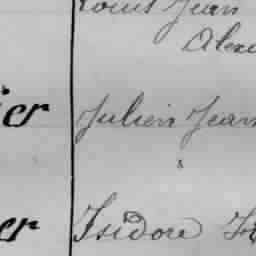 Louis Jean
Alex
ier Julien Jean
er Isidore